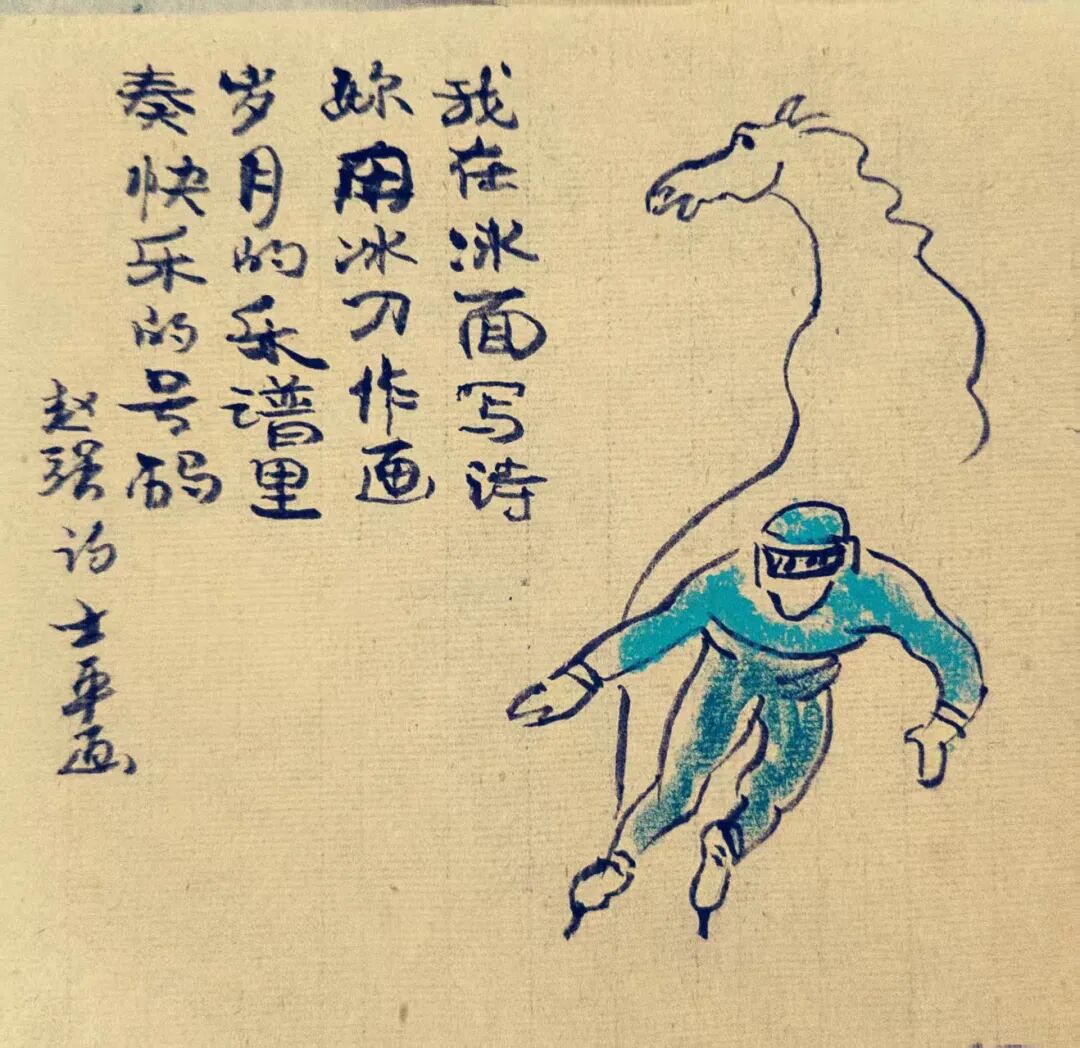 我在冰面写诗
妳用冰刀作画
岁月的乐谱里
奏快乐的号码
赵强诗 士平画